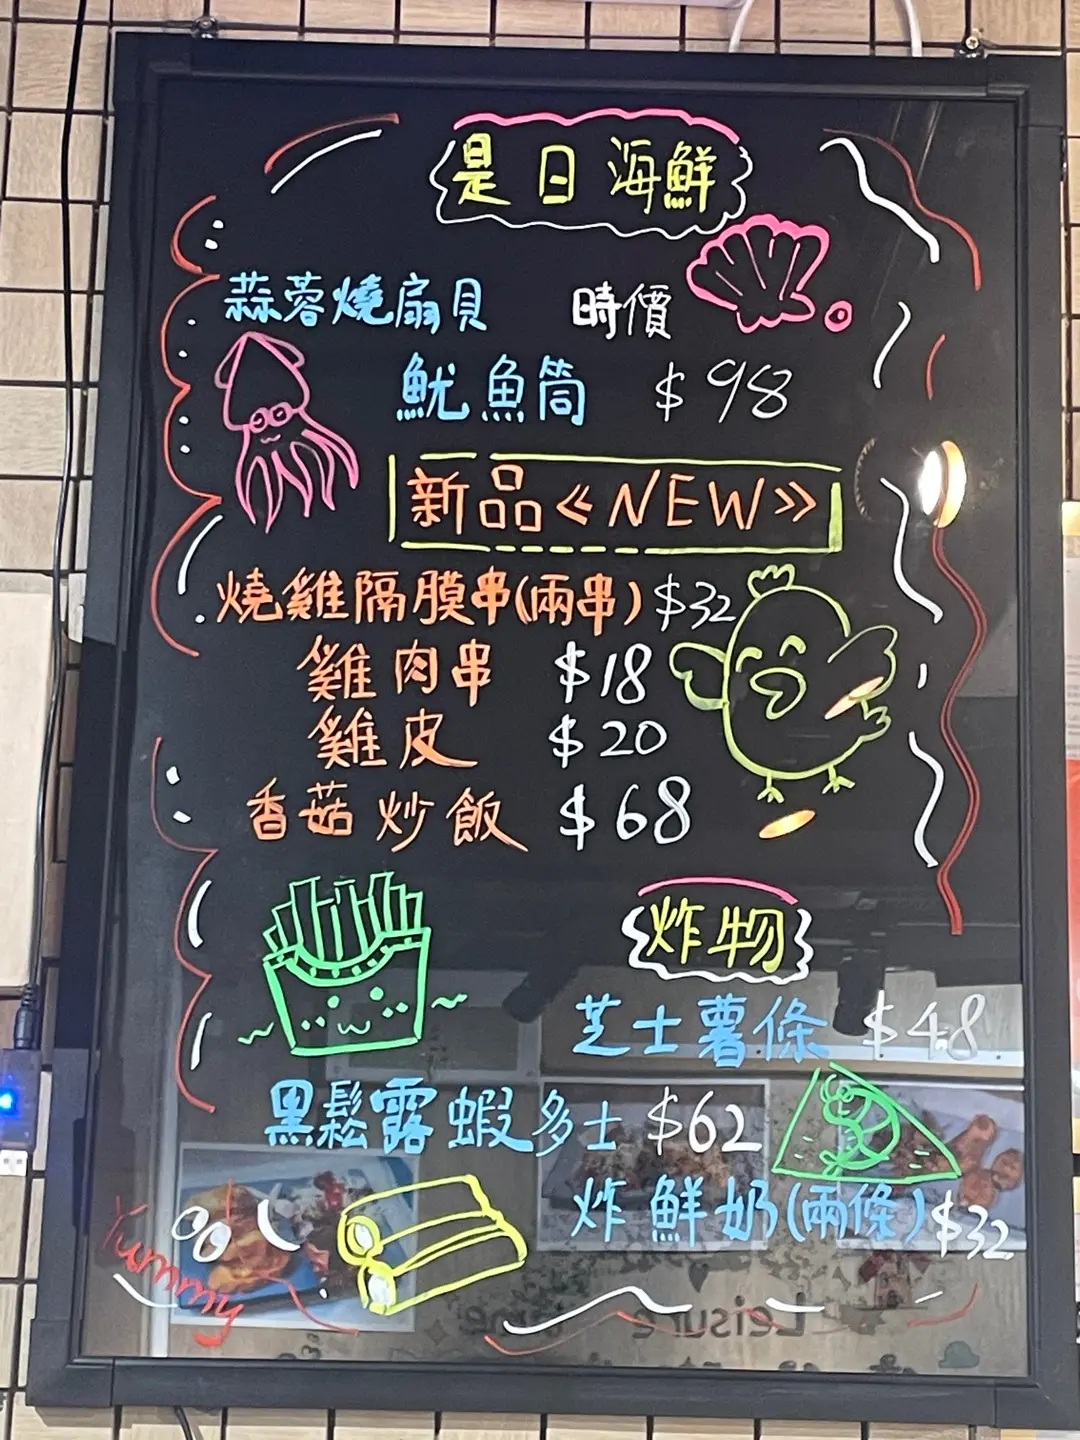 是日海鮮
蒜蓉燒扇貝 時價
魷魚筒 $98
新品《NEW》
燒雞隔膜串(兩串) $32
雞肉串 $18
雞皮 $20
香菇炒飯 $68
炸物
芝士薯條 $48
黑鬆露蝦多士 $62
炸鮮奶(兩條) $32
Yummy
Leisure